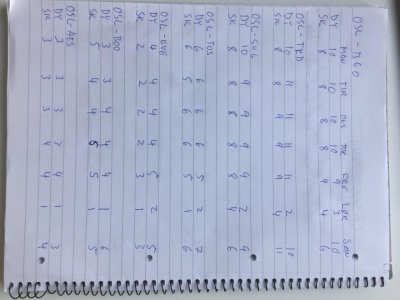 OSL-BGO
MAN TIR ONS TOR FRE LØR SØN
DY 10 10 10 9 9 3 10
SK 8 8 8 8 8 4 6
OSL-TRD
DY 10 11 11 11 11 2 10
SK 8 8 9 9 9 4 11
OSL-SVG
DY 10 9 9 9 9 2 9
SK 8 8 8 8 8 4 6
OSL-TOS
DY 6 6 6 6 5 2 7
SK 6 6 6 6 5 1 6
OSL-EVE
DY 4 4 4 4 5 2 5
SK 2 2 2 2 3 1 3
OSL-BOO
DY 3 3 4 4 4 1 6
SK 5 4 4 5 5 1 5
OSL-AES
DY 3 3 3 3 4 1 3
SK 3 3 3 4 4 1 4